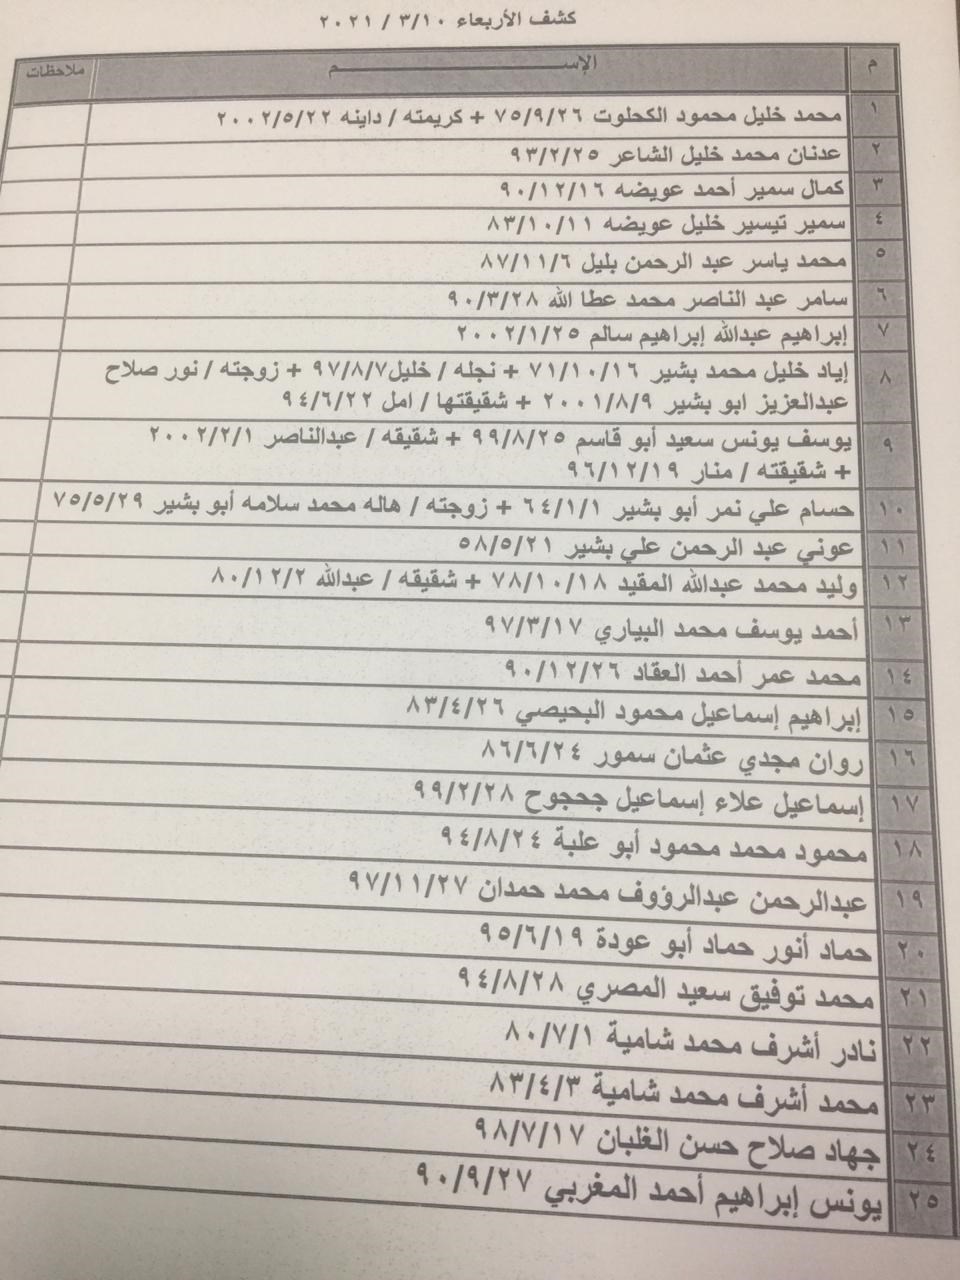 كشف الأربعاء ٣/١٠ / ٢٠٢١
م الإســـــم ملاحظات
١ محمد خليل محمود الكحلوت ٧٥/٩/٢٦ + كريمته / داينه ٢٠٠٢/٥/٢٢
٢ عدنان محمد خليل الشاعر ٩٣/٢/٢٥
٣ كمال سمير أحمد عويضه ٩٠/١٢/١٦
٤ سمير تيسير خليل عويضه ٨٣/١٠/١١
٥ محمد ياسر عبد الرحمن بليل ٨٧/١١/٦
٦ سامر عبد الناصر محمد عطا الله ٩٠/٣/٢٨
٧ إبراهيم عبدالله إبراهيم سالم ٢٠٠٢/١/٢٥
٨ إياد خليل محمد بشير ٧١/١٠/١٦ + نجله / خليل٩٧/٨/٧ + زوجته / نور صلاح
عبدالعزيز ابو بشير ٢٠٠١/٨/٩ + شقيقتها / امل ٩٤/٦/٢٢
٩ يوسف يونس سعيد أبو قاسم ٩٩/٨/٢٥ + شقيقه / عبدالناصر ٢٠٠٢/٢/١
+ شقيقته / منار ٩٦/١٢/١٩
١٠ حسام علي نمر أبو بشير ٦٤/١/١ + زوجته / هاله محمد سلامه أبو بشير ٧٥/٥/٢٩
١١ عوني عبد الرحمن علي بشير ٥٨/٥/٢١
١٢ وليد محمد عبدالله المقيد ٧٨/١٠/١٨ + شقيقه / عبدالله ٨٠/١٢/٢
١٣ أحمد يوسف محمد البياري ٩٧/٣/١٧
١٤ محمد عمر أحمد العقاد ٩٠/١٢/٢٦
١٥ إبراهيم إسماعيل محمود البحيصي ٨٣/٤/٢٦
١٦ روان مجدي عثمان سمور ٨٦/٦/٢٤
١٧ إسماعيل علاء إسماعيل جحجوح ٩٩/٢/٢٨
١٨ محمود محمد محمود أبو علبة ٩٤/٨/٢٤
١٩ عبدالرحمن عبدالرؤوف محمد حمدان ٩٧/١١/٢٧
٢٠ حماد أنور حماد أبو عودة ٩٥/٦/١٩
٢١ محمد توفيق سعيد المصري ٩٤/٨/٢٨
٢٢ نادر أشرف محمد شامية ٨٠/٧/١
٢٣ محمد أشرف محمد شامية ٨٣/٤/٣
٢٤ جهاد صلاح حسن الغلبان ٩٨/٧/١٧
٢٥ يونس إبراهيم أحمد المغربي ٩٠/٩/٢٧